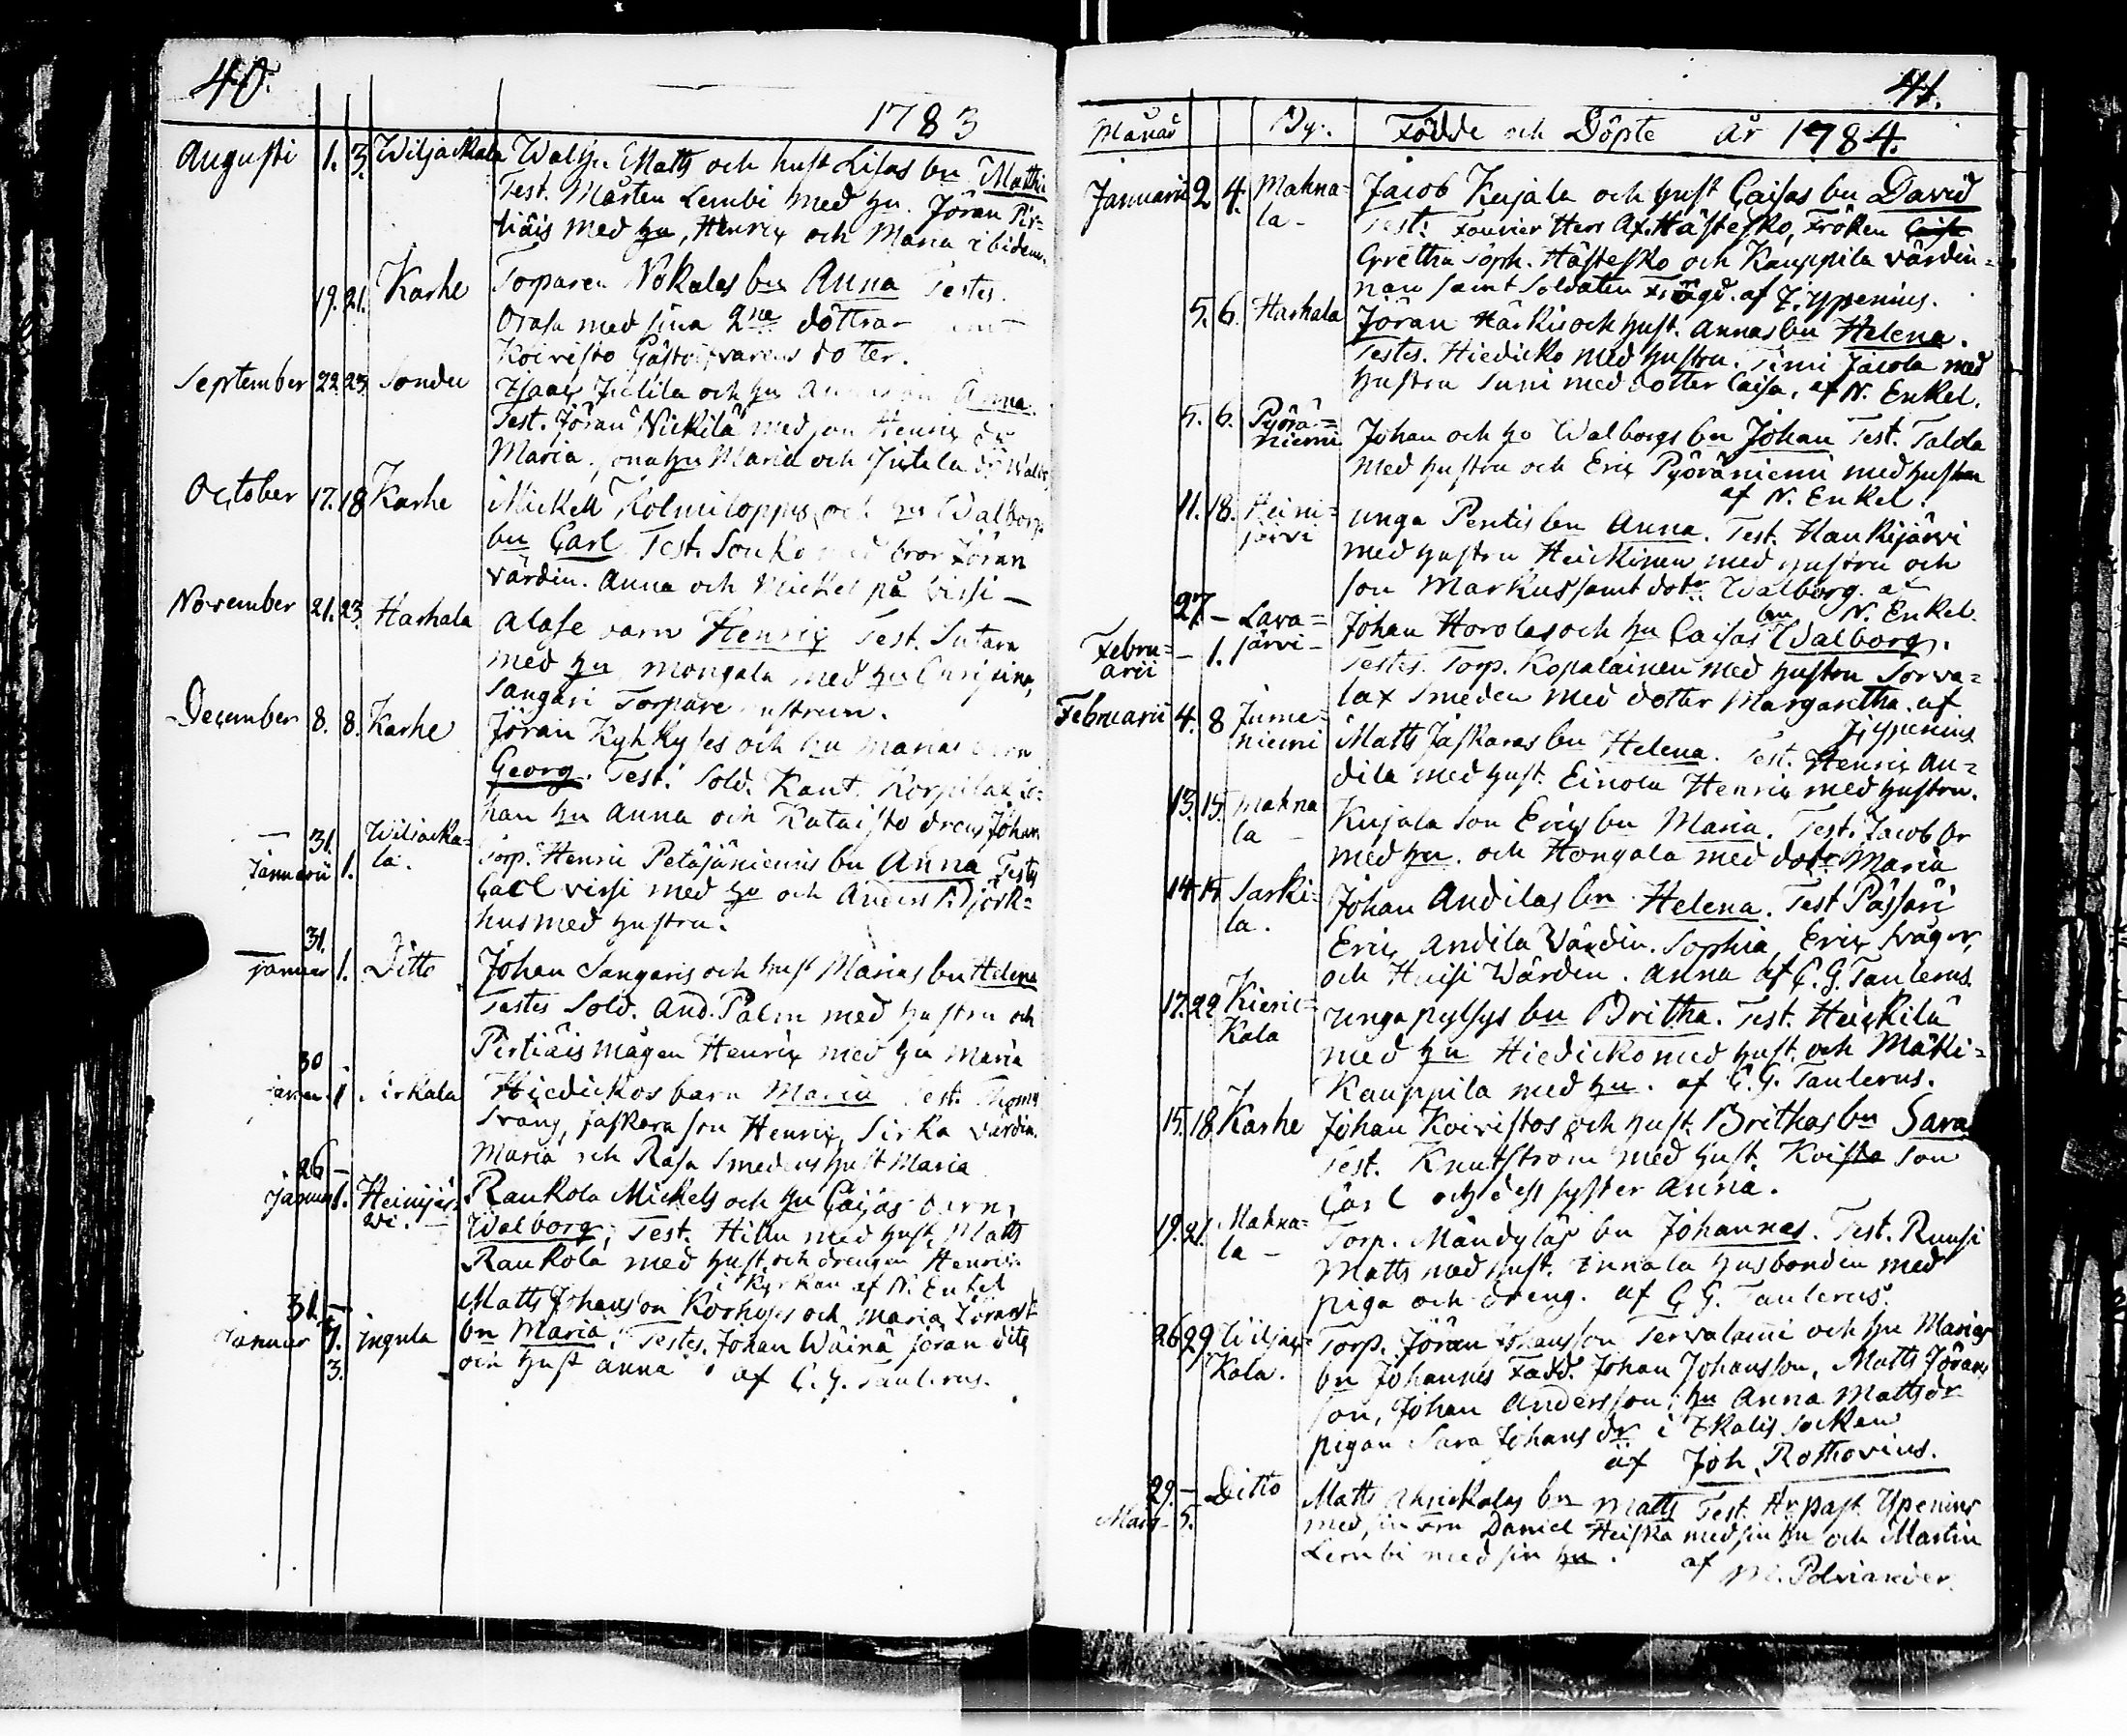 40.
1783
Augusti 1. 3. Wiljackala Matts och hust Lisas bn Matthi
Test. Mårten Lembi med hu. Jöran Pir-
tiäis med hu, Henrix och Maria ibidem.
19. 21. Karhe Torparen Nokalas bn Anna Testes.
Orasa med sina 2ne döttrar samt
Koivisto doter.
September 22 23 Jutila och hu Anna
Test. Jöran Nickilä med son Henrix
Maria. hu Maria och Jutila
October 17. 18 Karhe Mickell Kolmiloppis och hu Walborgs
bn Carl Test. Souko med bror Jöran
värdin. Anna och Mickel på
November 21. 23. Harhala Alase barn Henrix Test. Sutara
med hu mongala med hu
Sangari Torpare
December 8. 8. Karhe Jöran Kyhkyses och hu Marias barn
Georg. Test. Sold. Kant. Korpilax
han hu Anna och Kataisto dreng Johan
— 31. Wiljacka-
Januarii 1. la. Torp. Henric Petäjäniemis bn Anna Testes
Carl virsi med hu och Anders Björk-
hus med hustru.
31.
Januar 1. Ditto Johan Sangaris och hust Marias bn Helena
Testes Sold. And. Palm med hustru och
Pirtiäis mågen Henrix med hu Maria
30
1. Hiedickos barn Maria Test. Thoms
Svang, Jaskara son Henrix, Sirka värdin.
Maria och Rasa Smedens hust Maria
26 —
Januar 1. Heinijär-
vi. Raukola Mickels och hu Caisas barn
Walborg; Test. Hillu med hust, Matts
Raukola med hust, och drengen Henric.
i Kyrkan af N. Enkel
31. — Matts Johansson Korhoses och Maria
Januar 1. Ingula bn Maria; Testes. Johan Wäinä Jöran dito
3. och hust Anna af C. G. Taulerus.
41.
Månad By. Födde och Döpte år 1784.
Januarii 2 4. Mahna- Jacob Kujala och hust Caisas bn David
la - Test: Fourier Herr Ax. Hästesko, Fröken
Gretha Soph. Hästesko och Kauppila värdin-
nan samt Soldaten Frögd. af J. Yppenius.
5. 6. Harhala Jöran Härkis och hust. Annas bn Helena.
Testes. Hiedicko med hustru. Timi Jacola med
hustru Suni med dotter Caisa, af N. Enkel.
5. 6. Pyörä-
niemi Johan och hu Walborgs bn Johan Test. Talda
med hustru och Eric Pyöräniemi med hustru
af N. Enkel.
11. 18. Heini-
järvi unga Pentis bn Anna. Test. Haukijärvi
med hustru Heickinen med hustru och
son Markus samt dotr. Walborg. af
N. Enkel.
27. — Lava- Johan Horolas och hu Caisas bn Walborg.
Febru-
arii — 1. järvi - Testes. Torp. Kopalainen med hustru Sorva-
lax Smeden med dotter Margaretha. af
J. Yppenius
Februarii 4. 8 Jume-
niemi Matts Jaskaras bn Helena. Test. Henrix An-
dila med hust. Einola Henrix med hustru.
13. 15. Mahna
la - Kujala son Erics bn Maria. Test. Jacob Or
med hu. och Hongala med dotr Maria
14 15 Sarki-
la. Johan Andilas bn Helena. Test Passari
Eric, Andila Värdin. Sophia, Eric svåger,
och Heisi Wärdin. Anna af C. G. Taulerus.
17. 22 Kieric-
Kala unga pylsys bn Britha. Test. Heickilä
med hu Hiedicko med hust. och Mäki-
Kauppila med hu. af C. G. Taulerus.
15. 18. Karhe Johan Koivistos och hust. Brithas bn Sara
Test. Knutström med hust. Koisto son
Carl och dess syster Anna.
19. 21. Mahna-
la - Torp. Mändyläs bn Johannes. Test. Ruusi
Matts med hust. Innala husbonden med
piga och dreng. af C. G. Taulerus.
26 29. Wiljac-
Kala. Torp. Jöran Johansson Tervalami och hu Marias
bn Johannes Fadd. Johan Johansson, Matts Jörans
son, Johan Andersson; hu Anna Mattsdr
pigan Sara Johansdr i Ikalis socken
af Joh. Rothovius.
29. — Ditto Matts Ahrickalas bn Matts Test. Hr past. Ypenius
Mars 5. med sin Fru Daniel Heiska med sin hu och Martin
Lembi med sin hu. af
M. Polviander.